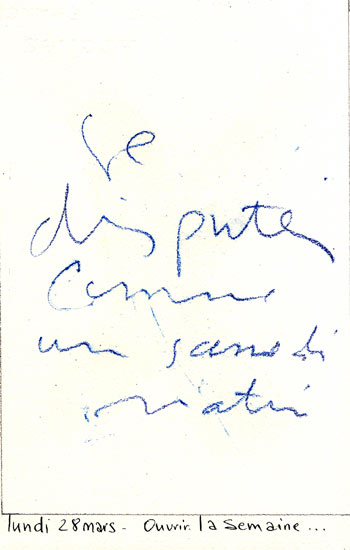 Se
disputer
Comme
un samedi
matin
lundi 28 mars - Ouvrir la semaine...